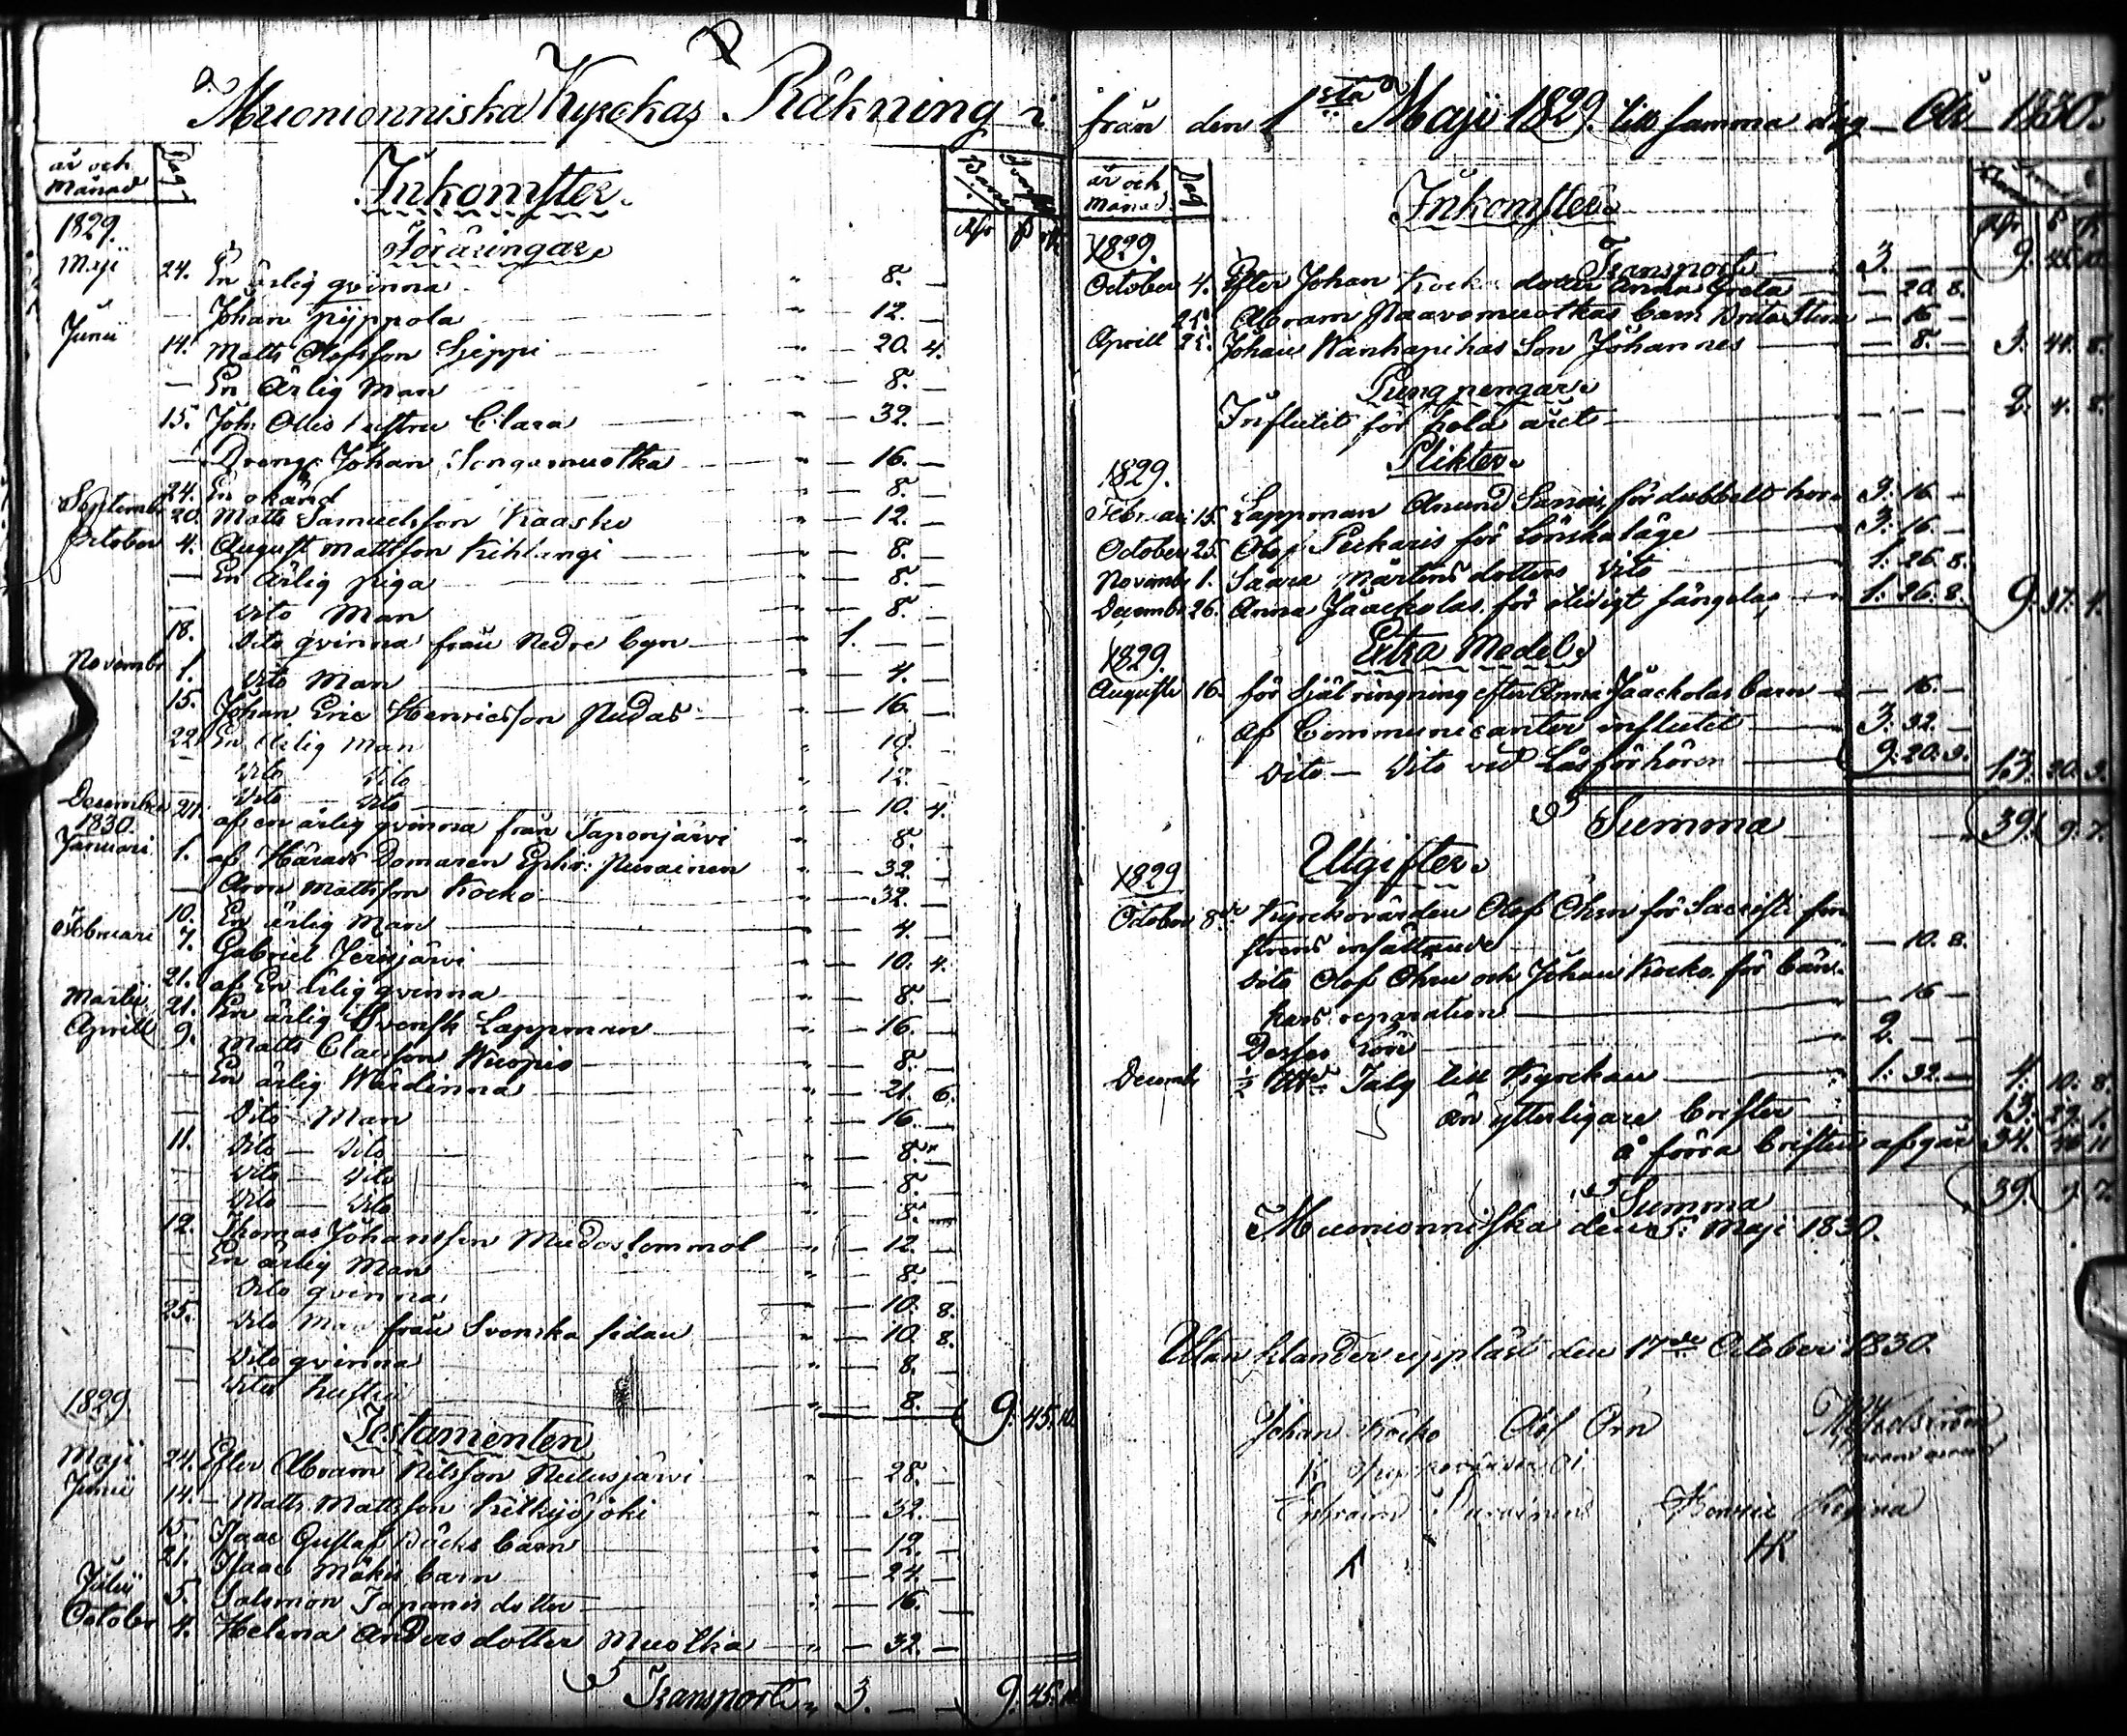 Muonionniska Kyrckas Räkning
år och Månad Dag Inkomster Banco
1829. Föräringar Rdr
Maji 24. En ärlig qvinna " — 8. —
— Johan Pyppola " — 12. —
Junii 14. Matts Olofsson Sieppi " — 20. 4.
— En Ärlig Man " — 8. —
15. Joh: Ollis hustru Clara " — 32. —
— Dreng: Johan Songamuotka " — 16. —
24. En okänd " — 8. —
Septembr 20. Matts Samuelsson Kaasko " — 12. —
October 4. August Mattsson Kihlangi " — 8. —
— En Ärlig piga " — 8. —
— Dito Man " — 8. —
18. Dito qvinna från Nedre byn " 1. — —
Novembr 1. Dito Man " — 4. —
15. Johan Eric Henricsson Nudas " — 16. —
22. En Ärlig Man " — 10. —
— Dito Dito " — 12. —
— Dito — Dito " — 10. 4.
December 27. af en ärlig qvinna från Saponjärvi " — 8. —
1830.
Januari 1. af Härads Domaren Ephr: Puranen " — 32. —
— Aron Mattsson Kocko " — 32. —
10. En ärlig Man " — 4. —
Februari 7. Gabriel Jerisjärvi " — 10. 4.
21. af En ärlig qvinna " — 8. —
Martii 21. En ärlig Svensk Lappman " — 16. —
Aprill 9. Matts Clausson Kuopio " — 8. —
— En ärlig Wärdinna " — 21. 6.
— Dito — Man " — 16. —
11. Dito — Dito " — 8. —
— Dito — Dito " — 8. —
— Dito — Dito " — 8. —
12. Thomas Johansson Mudoslommol " — 12. —
— En ärlig Man " — 8. —
— Dito qvinna " — 10. 8.
25. Dito Man från Svenska sidan " — 10. 8.
— Dito qvinna " — 8. —
— Dito hustru " — 8. — 9. 45. 10.
1829 Testamenten
Maji 24. Efter Abram Nilsson Neitusjärvi " — 28. —
Junii 14. — Matts Mattsson Kitkiöjoki " — 32. —
15. Isaac Gustaf Bäcks barn " — 12. —
21. Isaac Mäkis barn " — 24. —
Julii 5. Salomon Tapanis dotter " — 16. —
October 4. Helena Anders dotter Muotka " — 32. —
Transport " 3. — — 9. 45. 10
från den 1sta Maji 1829. till samma dag — År — 1830.
år och Månad Dag Inkomster
1829. Transport 3. — — 9. 45. 10
October 4. Efter Johan Kocko dotter Anna Greta — 20. 8.
25. Abram Naavamuotkas barn Brita Stina — 16 —
Aprill 25. Johan Wanhapihas Son Johannes — 8. — 3. 44. 8.
Pung pengar
Influtit för hela året — — — 2. 4. 8.
1829. Plikter
Februari 15. Lappman Amund för dubbelt hor 3: 16. —
October 25. Olof Peckaris för Lönskaläge 3: 16. —
Novembr 1. Saara Mårtens dotters Dito 1: 26. 8.
Decembr 26. Anna Jaackolas för otidigt sängelag 1: 26. 8. 9. 37. 4.
1829. Extra Medel
Augusti 16. för Själringning efter Anna Jaackolas barn — 16. —
af Communicanter influtit 3. 32. —
Dito — Dito vid Läsförhören 9. 20. 3. 13. 20. 3.
Summa 39. 9. 7.
1829 Utgifter
October 8de Kyrckovärden Olof Öhrn för Sacristi fön
strens insättande — 10. 8.
Dito Olof Öhrn och Johan Kocko för bän
kars reparation — 16 —
Desses Lön 2. — —
Decembr ½ Talg till Kyrckan 1: 32. — 4. 10. 8.
än ytterligare brister 13. 29. 1.
å förra bristen afgår 34. 46. 11
Summa 39. 9. 7.
Muonionniska den 5: Maji 1830.
Utan klander uppläst den 17de October 1830.
Johan Kocko Olof Örn
K
Ephraim Puranen Regina
HK